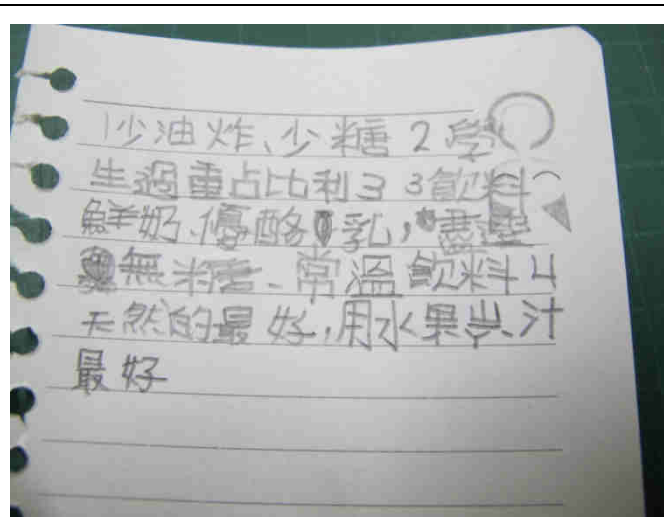 1少油炸、少糖 2學
生過重占比利3 3飲料
鮮奶、優酪乳，盡量
無糖、常溫飲料4
天然的最好，用水果 汁
最好